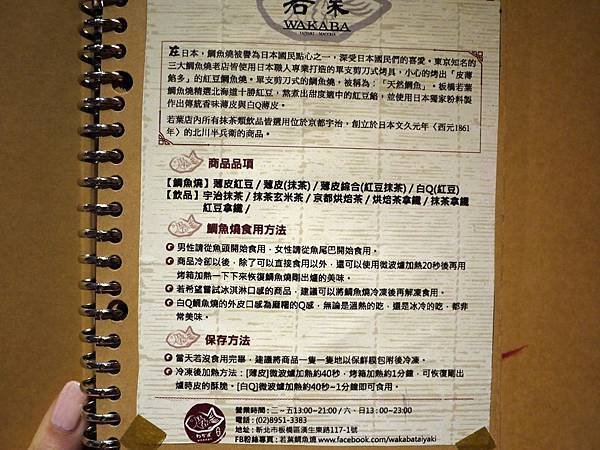 若葉
WAKABA
TAIYAKI MACCHA
在日本，鯛魚燒被譽為日本國民點心之一，深受日本國民們的喜愛。東京知名的
三大鯛魚燒老店皆使用日本職人專業打造的單支剪刀式烤具，小心的烤出「皮薄
餡多」的紅豆鯛魚燒。單支剪刀式的鯛魚燒，被稱為：「天然鯛魚」。板橋若葉
鯛魚燒精選北海道十勝紅豆，熬煮出甜度適中的紅豆餡，並使用日本獨家粉料製
作出傳統香味薄皮與白Q薄皮。
若葉店內所有抹茶類飲品皆選用位於京都宇治，創立於日本文久元年〈西元1861
年〉的北川半兵衛的商品。
商品品項
【鯛魚燒】薄皮紅豆 / 薄皮(抹茶) / 薄皮綜合(紅豆抹茶) / 白Q(紅豆)
【飲品】宇治抹茶 / 抹茶玄米茶 / 京都烘焙茶 / 烘焙茶拿鐵 / 抹茶拿鐵
紅豆拿鐵 /
鯛魚燒食用方法
男性請從魚頭開始食用，女性請從魚尾巴開始食用。
商品冷卻以後，除了可以直接食用以外，還可以使用微波爐加熱20秒後再用
烤箱加熱一下下來恢復鯛魚燒剛出爐的美味。
若希望嘗試冰淇淋口感的商品，建議可以將鯛魚燒冷凍後再解凍食用。
白Q鯛魚燒的外皮口感為麻糬的Q感，無論是溫熱的吃，還是冰冷的吃，都非
常美味。
保存方法
當天若沒食用完畢，建議將商品一隻一隻地以保鮮膜包附後冷凍。
冷凍後加熱方法：[薄皮]微波爐加熱約40秒，烤箱加熱約1分鐘，可恢復剛出
爐時皮的酥脆。[白Q]微波爐加熱約40秒~1分鐘即可食用。
營業時間：二～五13:00~21:00 / 六、日13：00~23:00
電話：(02)8951-3383
地址：新北市板橋區漢生東路117-1號
FB粉絲專頁：若葉鯛魚燒 www.facebook.com/wakabataiyaki